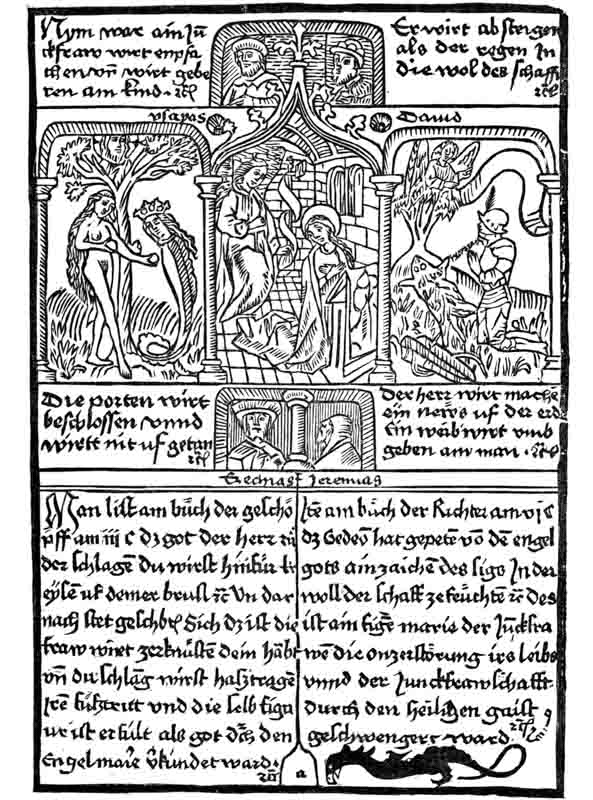 Nym war ain Jū
ckfraw wirt enpfa
chen vn̄ wirt gebe
ren ain kind · ꝛc
Er wirt absteigen
als der regen In
die wol des schaffs
ꝛc
ysayas
Dauid
Die porten wirt
beschlossen vnnd
wirtt nit uf getan
ꝛc
Der herr wirt machē
ein news uf der erd
Ein weib wirt vmb
geben ain man · ꝛc
Jeremias
Man list am bůch der geschö
pff am iii C dz got der herr zů
der schlagen Du wirst hinfür kr
eysen uf deiner brust ꝛc Vn dar
nach stet geschrbē Sich dz ist die
fraw wirt zerknüsten dein habt
vn̄ du schlāg wirst hasztragen
Irē fůsztritt vnd die selb figu
ur ist erfült als got dch den
Engel marie vkündet ward ꝛc
Itē am bůch der Richter am vi C
dz Gedeō hat gepetē vō dē engel
gots ain zaichen des sigs In der
woll der schaff ze feüchtē ꝛc des
ist ain figē marie der Jūckfra
wē die on zerstörung irs leibs
vnnd der Junckfrawschafft
durch den heilichen gaist
geschwengert ward ꝛc
a